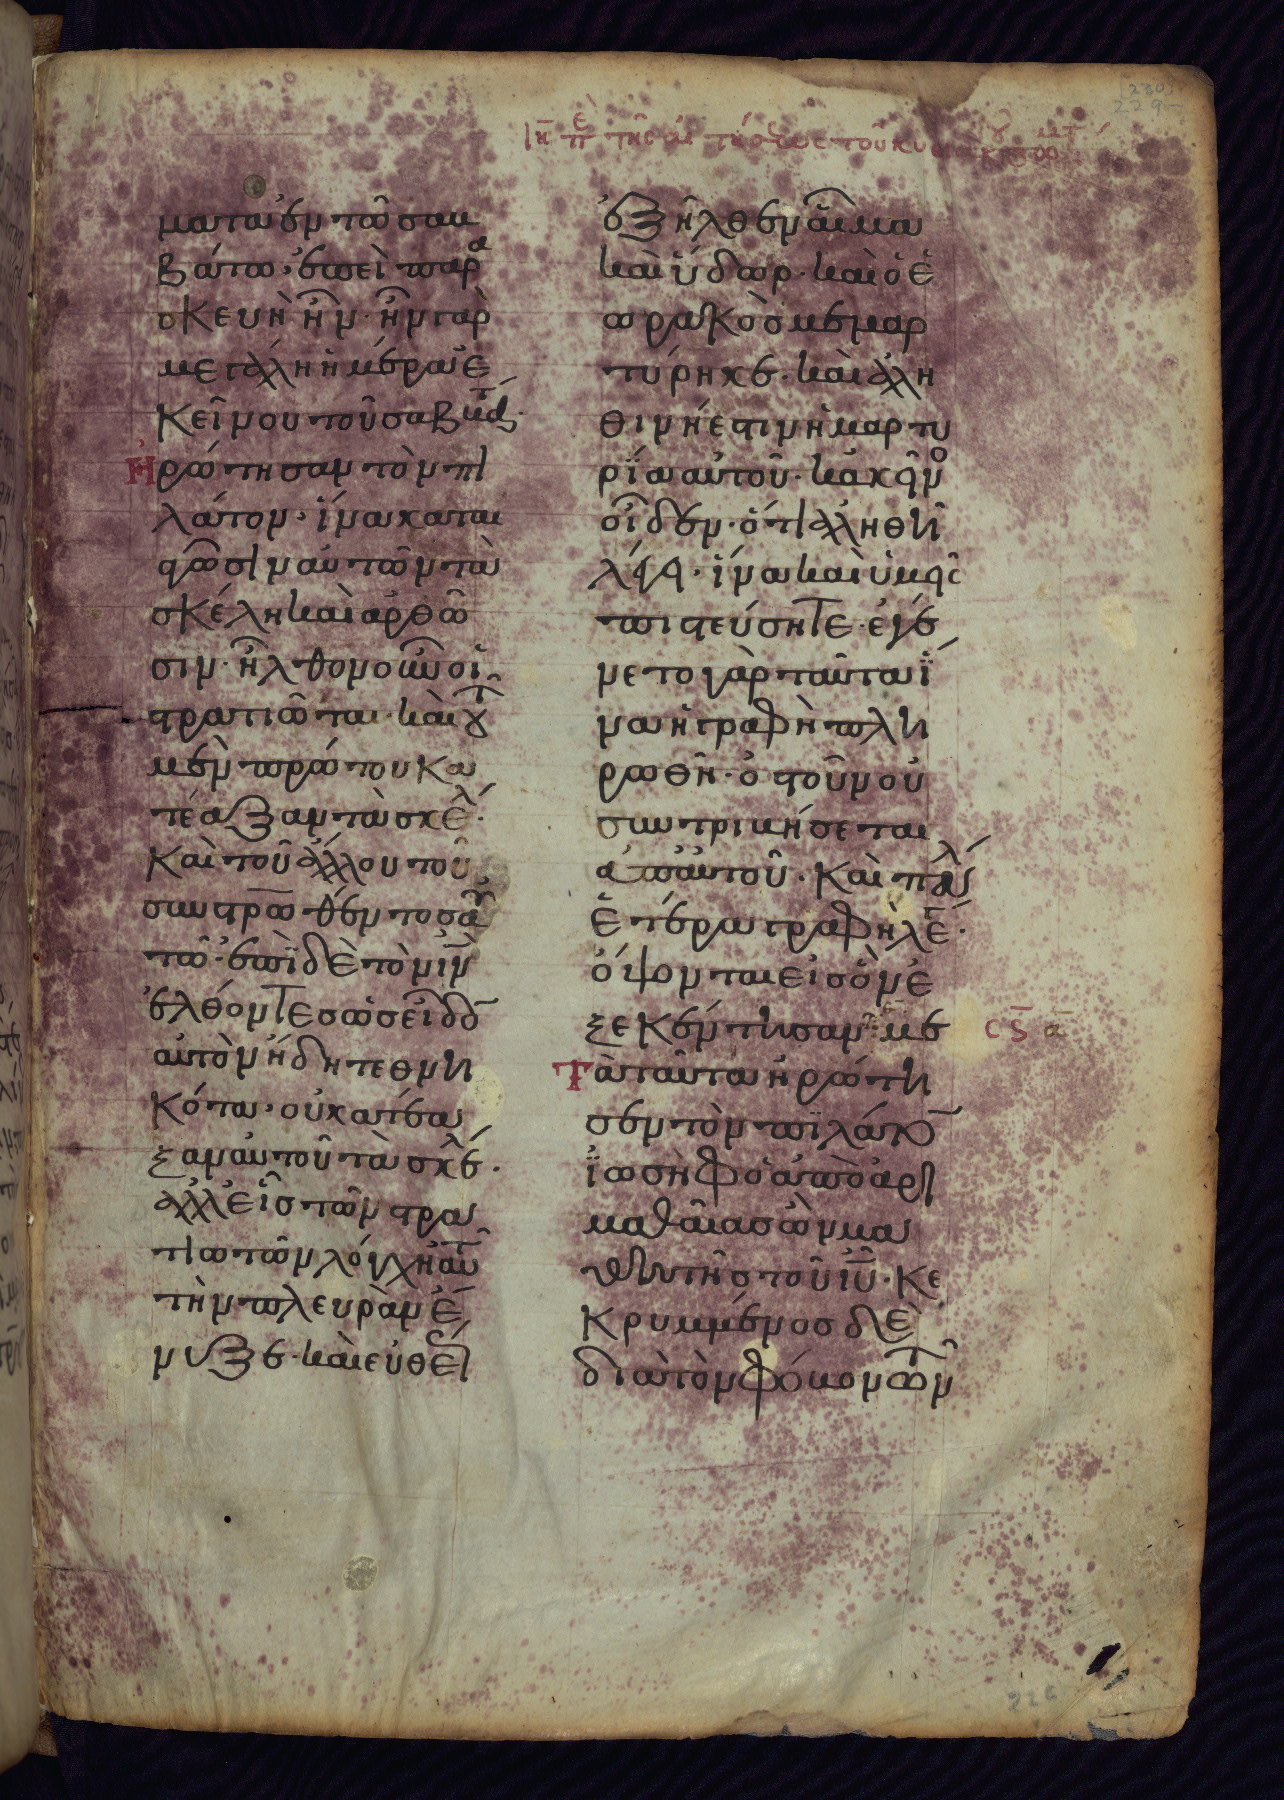 ματα ἐν τῶ σαμ
βάτω· ἐπεὶ παρα
σκευὴ ἦν· ἦν γὰρ
μεγάλη ἡμέρα ἐ
κείνου τοῦ σαββάτ·
Ἠρώτησαν τὸν πι
λάτον· ἵνα κατεα
γῶσιν αὐτῶν τὰ
σκέλη καὶ ἀρθῶ
σιν· ἦλθον οὖν οἱ
στρατιῶται· καὶ τοῦ
μὲν πρώτου κα
τέαξαν τὰ σκέλ·
καὶ τοῦ ἄλλου τοῦ
συστρωθέντος αὐ
τῶ· ἐπὶ δὲ τὸν ιν
ἐλθόντες ὡς εἶδον
αὐτὸν ἤδη τεθνη
κότα· οὐ κατέα
ξαν αὐτοῦ τὰ σκέλ·
ἀλλ εἷς τῶν στρα
τιωτῶν λόγχη αὐτοῦ
τὴν πλευρὰν ἔ
νυξε· καὶ εὐθέως
ἐξῆλθεν αἷμα
καὶ ὕδωρ· καὶ ὁ ἑ
ωρακὸς μεμαρ
τύρηκε· καὶ ἀλη
θινή ἐστιν ἡ μαρτυ
ρία αὐτοῦ· κἀκεῖνος
οἶδεν· ὅτι ἀληθῆ
λέγει· ἵνα καὶ ὑμεῖς
πιστεύσητε· ἐγέ
νετο γὰρ ταῦτα ἵ
να ἡ γραφὴ πλη
ρωθῆ· ὀστοῦν οὐ
συντριβήσεται
ἀπ αὐτοῦ· καὶ πάλ
ἑτέρα γραφὴ λέγ·
ὄψονται εἰς ὃν ἐ
ξεκέντησαν· με
Τὰ ταῦτα ἠρώτη
σεν τὸν πιλάτον
ἰωσὴφ ὁ ἀπὸ ἀρι
μαθαίας ὢν μα
θητὴς τοῦ ιυ· κε
κρυμμένος δὲ
διὰ τὸν φόβον τῶν